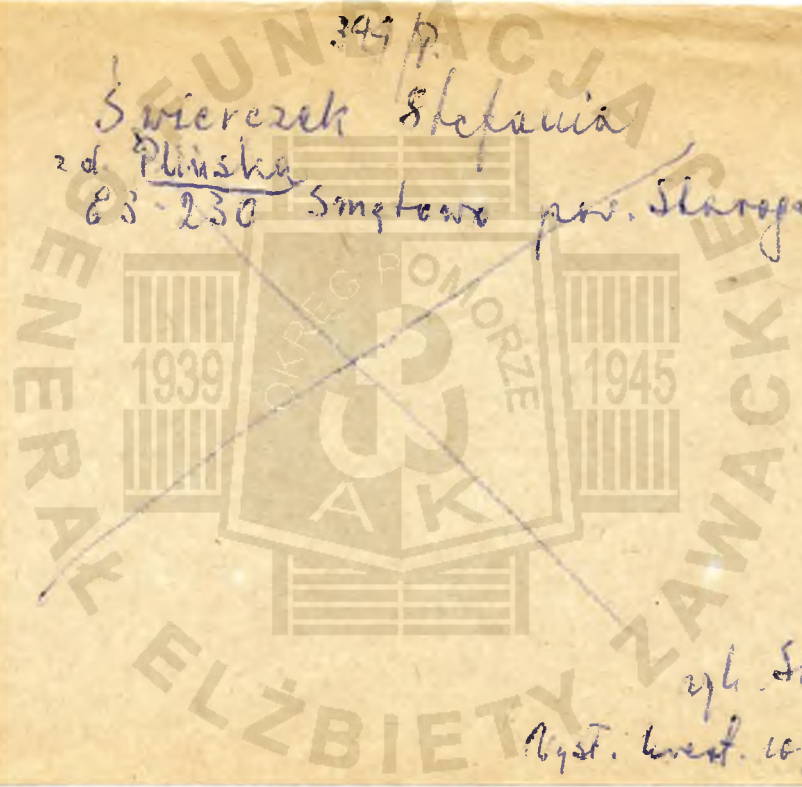 394/P.
Świerczek Stefania
z d. Plińska
83-230 Smętowo pow. Staroga
Wyst. kwest.
FUNDACJA
GENERAŁ ELŻBIETY ZAWACKIEJ
OKRĘG POMORZE
1939
1945
PW
AK